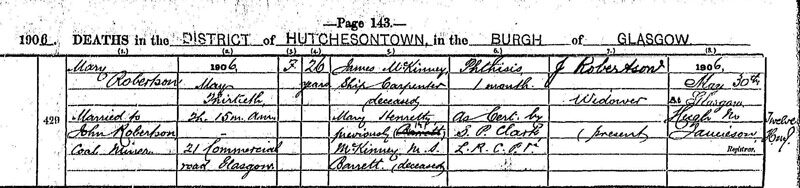 —Page 143.—
1906. DEATHS in the DISTRICT of HUTCHESONTOWN, in the BURGH of GLASGOW
(1.) (2.) (3.) (4.) (5.) (6.) (7.) (8.)
429
Mary
Robertson
Married to
John Robertson
Coal Miner
1906
May
Thirtieth
2h. 15m. A.M.
21 Commercial
road Glasgow
F
26
years
James McKinney
Ship Carpenter
deceased
Mary Henrietta
previously
McKinney M.S.
Barrett (deceased)
Phthisis
1 month
As Cert. by
S. P. Clark
L.R.C.P. &c
J Robertson
Widower
(present)
1906
May 30th
At Glasgow
Hugh M.
Jamieson
Registrar.
Twelve